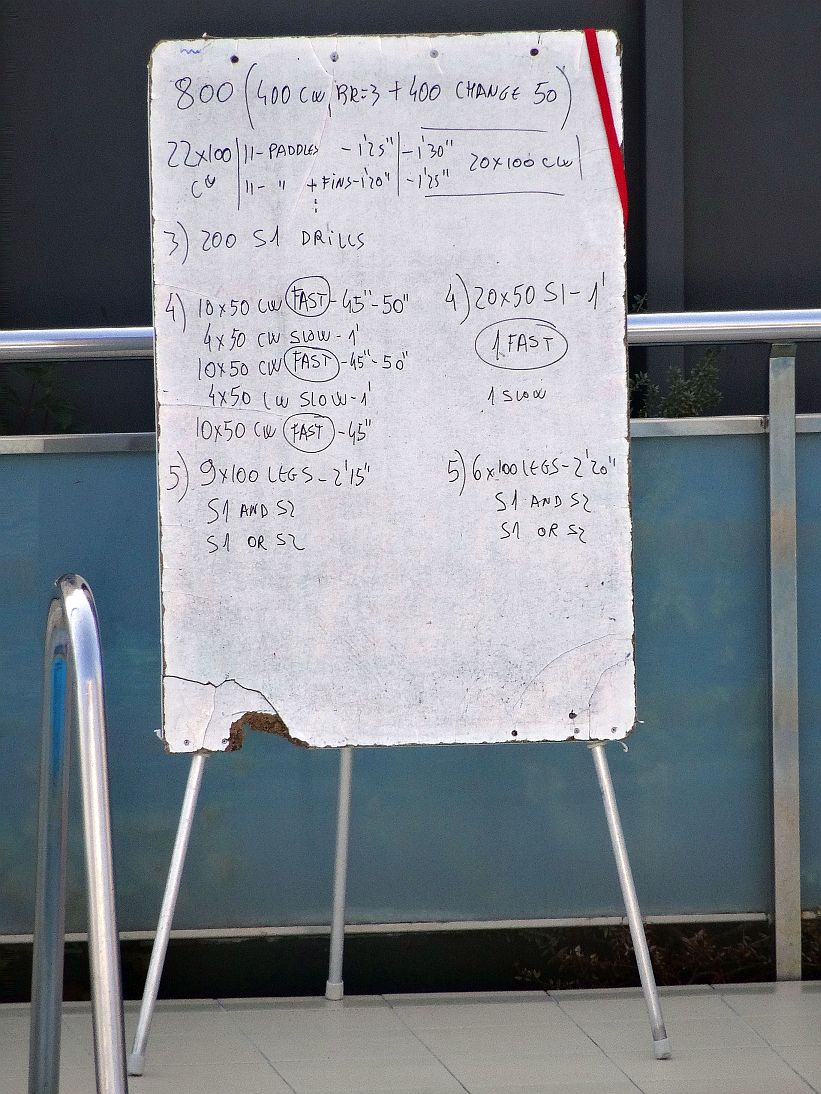 800 (400 CW, BR=3 + 400 CHANGE 50)
22x100 | 11-PADDLES -1'25" | -1'30" 20x100 CW |
CW | 11- " + FiNS-1'20" | -1'25"
3) 200 S1 DRiLLS
4) 10x50 CW FAST - 45"-50" 4) 20x50 S1 - 1'
4x50 CW SLOW - 1' 1 FAST
10x50 CW FAST - 45"-50"
4x50 CW SLOW - 1' 1 SLOW
10x50 CW FAST - 45"
5) 9x100 LEGS - 2'15" 5) 6x100 LEGS - 2'20"
S1 AND S2 S1 AND S2
S1 OR S2 S1 OR S2